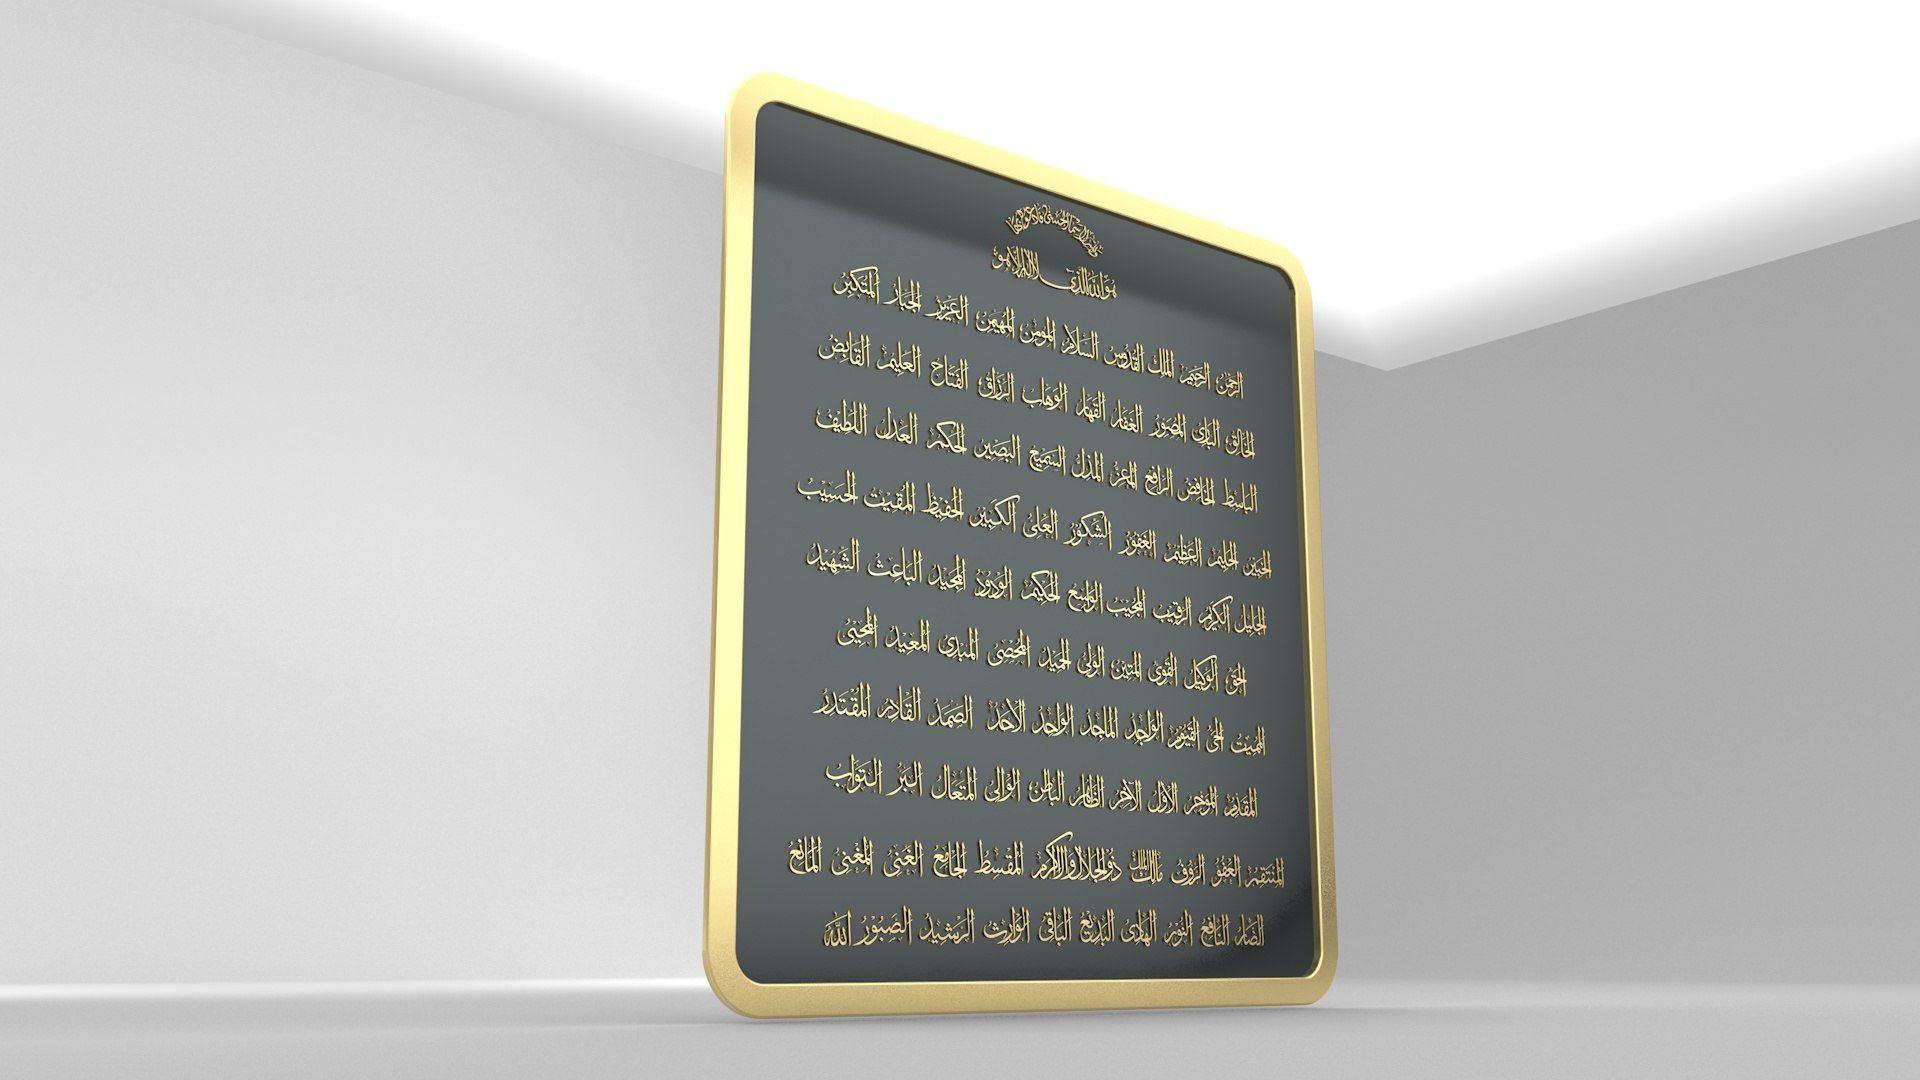 ولله الأسماء الحسنى فادعوه بها
هو الله الذي لا إله إلا هو
الرحمن الرحيم الملك القدوس السلام المؤمن المهيمن العزيز الجبار المتكبر
الخالق البارئ المصور الغفار القهار الوهاب الرزاق الفتاح العليم القابض
الباسط الخافض الرافع المعز المذل السميع البصير الحكم العدل اللطيف
الخبير الحليم العظيم الغفور الشكور العلي الكبير الحفيظ المقيت الحسيب
الجليل الكريم الرقيب المجيب الواسع الحكيم الودود المجيد الباعث الشهيد
الحق الوكيل القوى المتين الولى الحميد المحصى المبدى المعيد المحيى
المميت الحى القيوم الواجد الماجد الواحد الأحد الصمد القادر المقتدر
المقدم المؤخر الأول الآخر الظاهر الباطن الوالى المتعال البر التواب
المنتقم العفو الروف مالك الملك ذو الجلال والإكرام المقسط الجامع الغنى المغنى المانع
الضار النافع النور الهادى البديع الباقى الوارث الرشيد الصبور الله